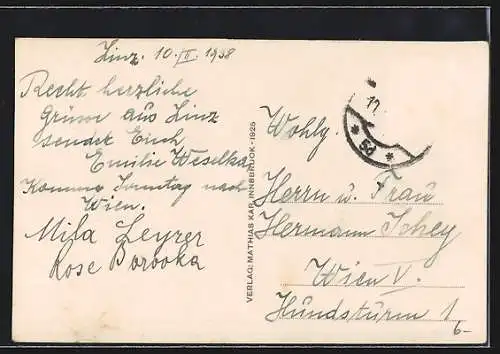 Linz. 10./II. 1938
Recht herzliche
Grüsse aus Linz
sendet Euch
Emilie Weselka
Komme Sonntag nach
Wien.
Mifa Zeyrer
Rose Borboka
VERLAG: MATTHIAS KAR, INNSBRUCK - 1925
12
* 5d *
Wohlg.
Herrn u. Frau
Hermann Schey
Wien V.
Hundsturm 1
6-